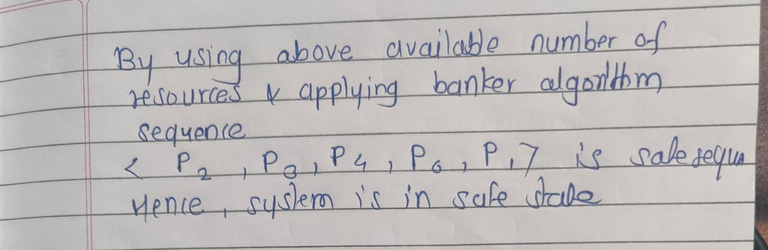 By using above available number of
resources & applying banker algorithm
sequence
< P2, P3, P4, P0, P1> is safe sequ
Hence, system is in safe state